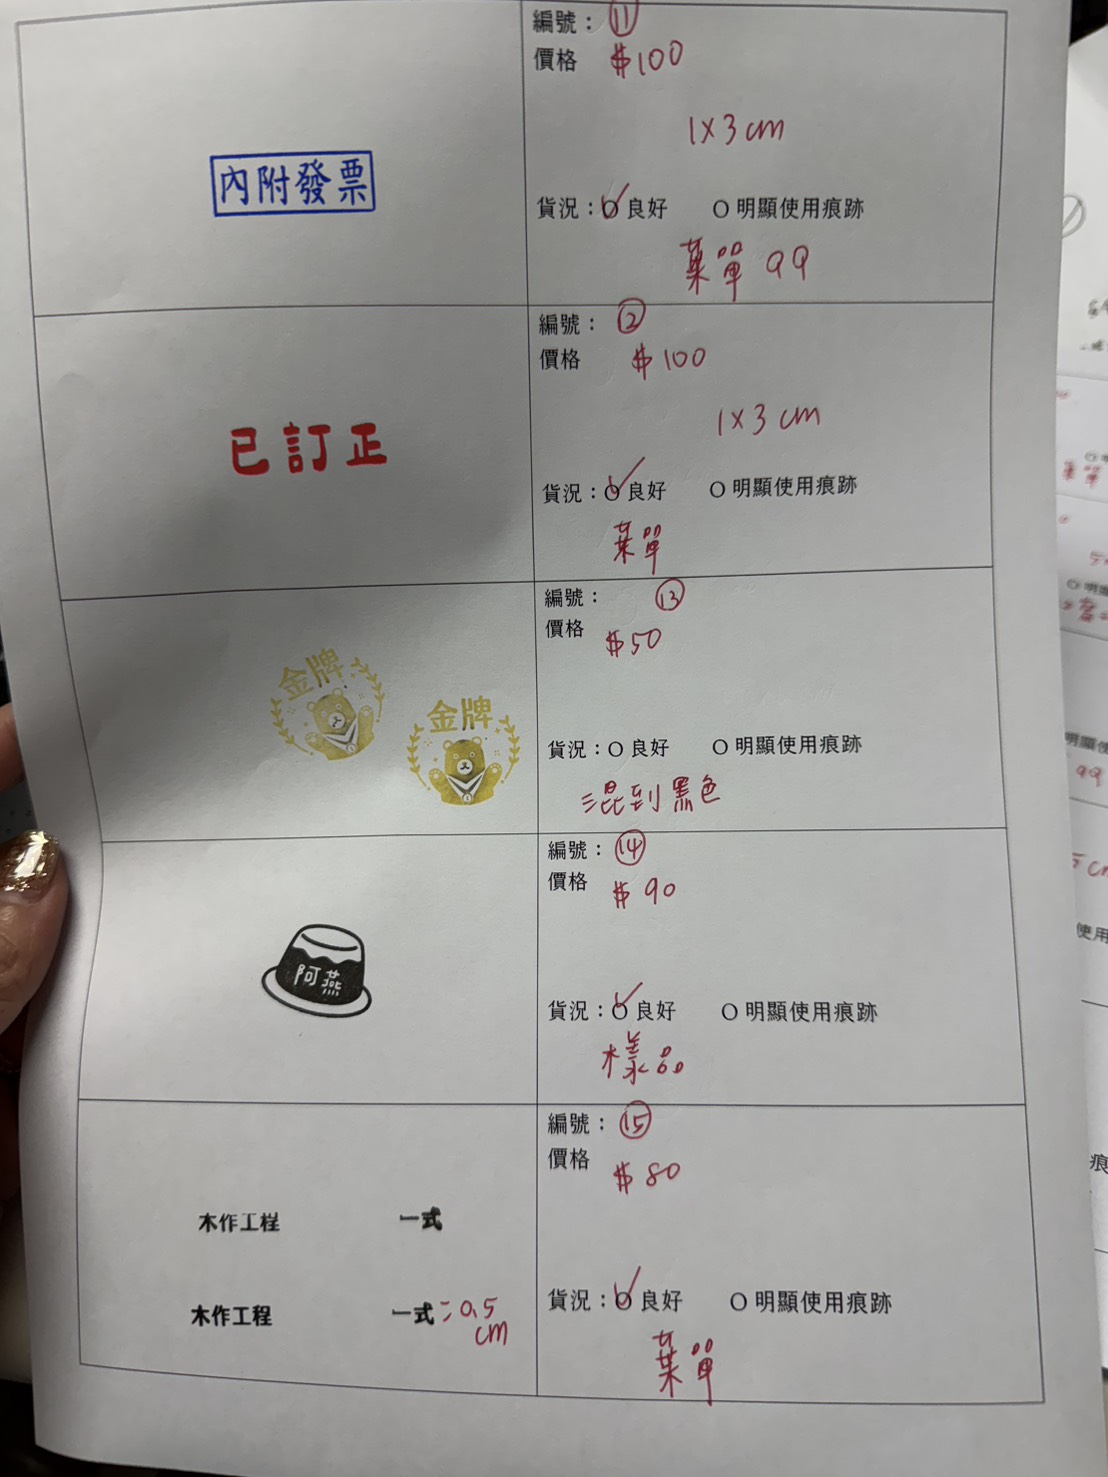 編號： ⑪
價格 $100
1X3cm
內附發票
貨況：O 良好 O 明顯使用痕跡
葉單 99
編號： ⑫
價格 $100
1X3cm
已訂正
貨況：O 良好 O 明顯使用痕跡
葉單
編號： ⑬
價格 $50
金牌
金牌
貨況：O 良好 O 明顯使用痕跡
混到黑色
編號： ⑭
價格 $90
阿燕
貨況：O 良好 O 明顯使用痕跡
樣品
編號： ⑮
價格 $80
木作工程 一式
貨況：O 良好 O 明顯使用痕跡
木作工程 一式 : 0.5
cm
葉單